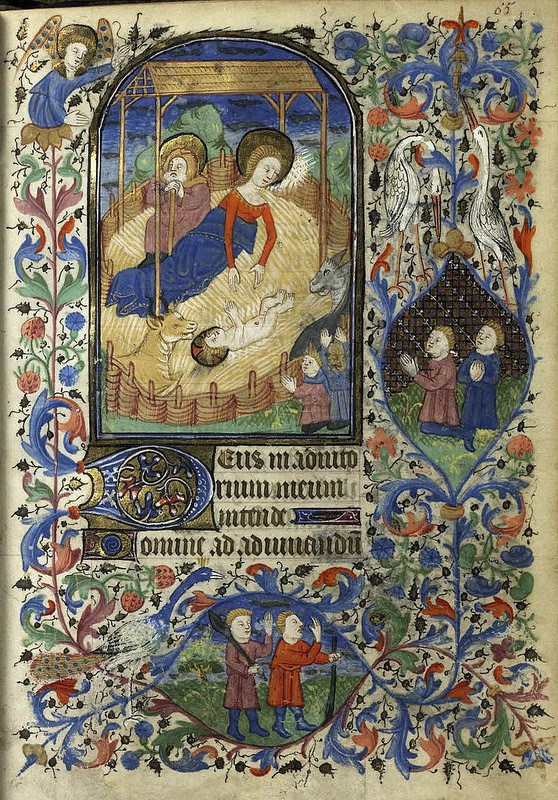 65
Deus in adiuto
rium meum
intende
Domine ad adiuuandū